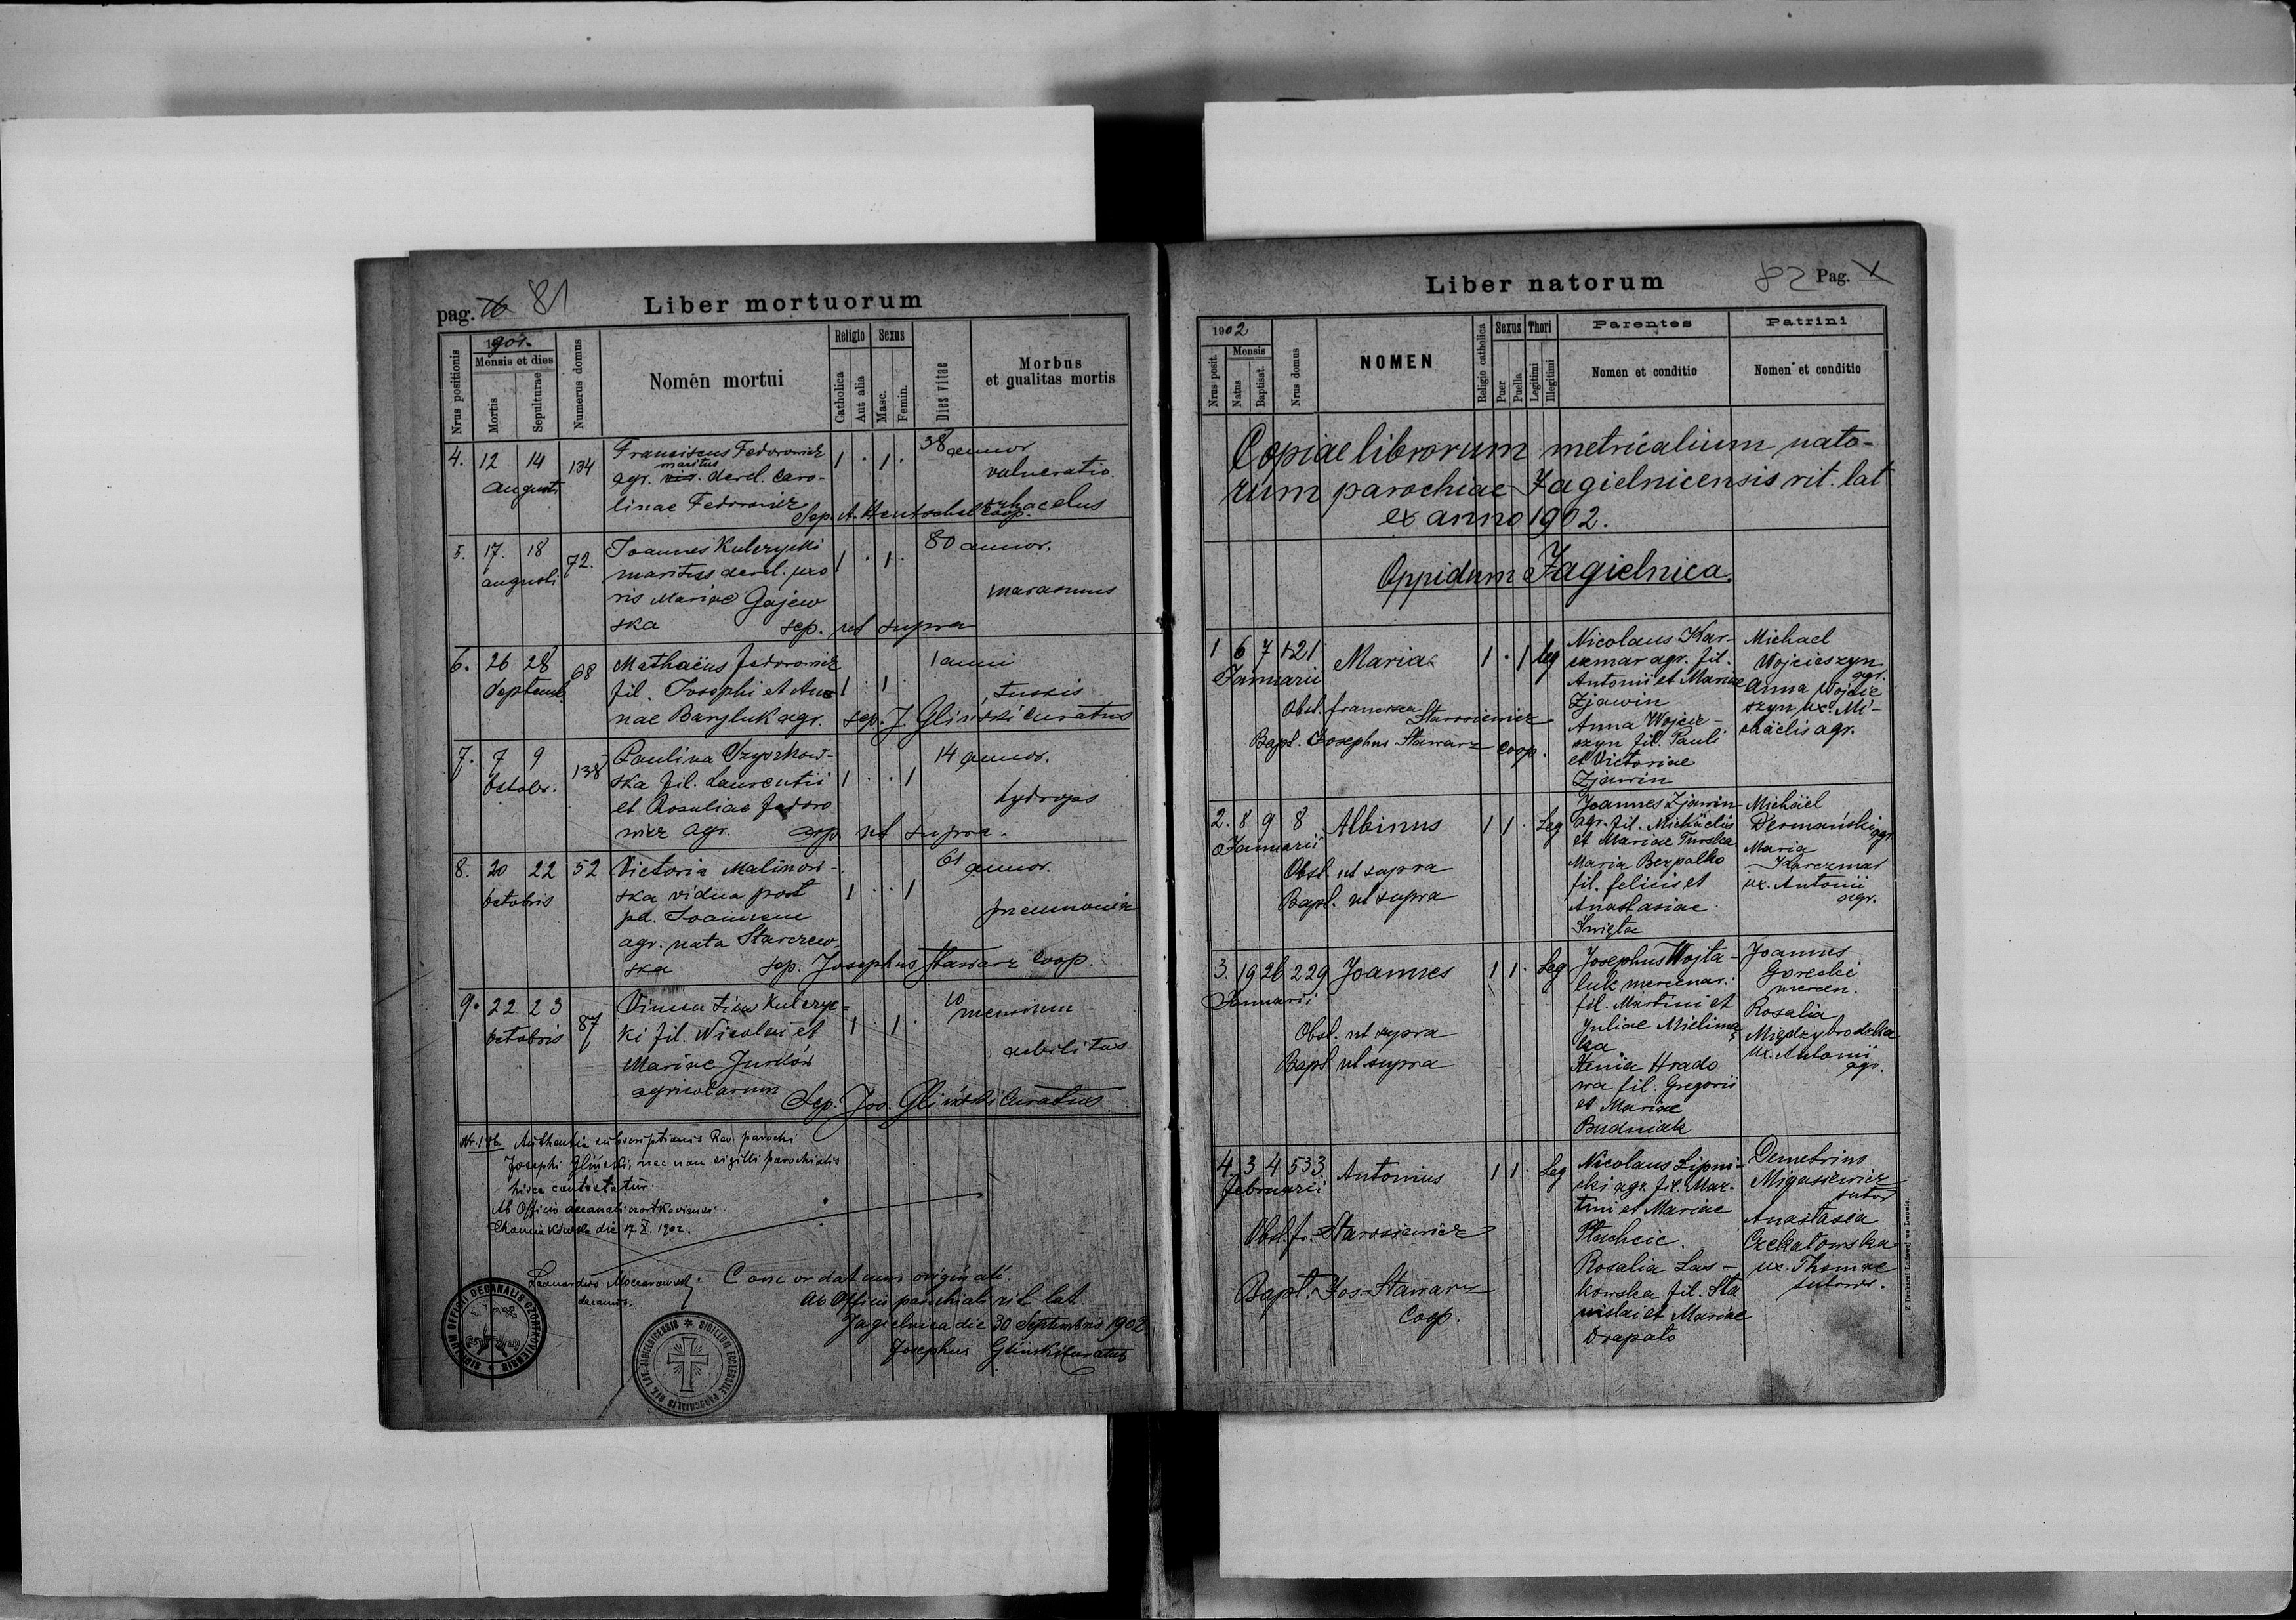 pag. 76 81
Liber mortuorum
Nrus positionis
1901.
Mensis et dies
Mortis
Sepulturae
Numerus domus
Nomen mortui
Religio
Catholica
Aut alia
Sexus
Masc.
Femin.
Dies vitae
Morbus
et qualitas mortis
4. 12 14 134 Franciscus Fedorowicz 1 . 1 . 38 annor
augusti agr. maritus derel. Caro- vulneratio
linae Fedorowicz Sep. A. Hentschel coop. sphacelus
5. 17. 18 72. Joannes Kulczycki 1 . 1 . 80 annor.
augusti maritus derel. uxo
ris Mariae Gajew marasmus
ska sep. ut supra
6. 26 28 68 Mathaëus Fedorowicz 1 anni
Septemb. fil. Josephi et An- 1 . 1 . tussis
nae Baryluk agr. sep. J. Gliński Curatus
7. 7 9 138 Paulina Szyszkow- 14 annor.
Octobr. ska fil. Laurentii 1 . . 1
et Rosaliae Fedoro hydrops
wicz agr. sep. ut supra.
8. 20 22 52 Victoria Malinow- 61 annor.
Octobris ska vidua post 1 . . 1
pd. Joannem pneumonia
agr. nata Starczew-
ska sep. Josephus Stawarz Coop.
9. 22 23 87 Kulczyc- 10 mensium
Octobris ki fil. Nicolai et 1 . 1 .
Mariae Jurków debilitas
agricolarum Sep. Jos. Gliński Curatus
Authentia subscriptionis Rev. parochi
Josephi Gliński, nec non sigilli parochialis
hisce contestatur.
Ab Officio decanali czortkoviensi
die X. 1902.
decanus.
Concordat cum originali.
Ab Officio parochiali rit. lat.
Jagielnica die 30 Septembris 1902
Josephus Gliński Curatus
SIGILLUM OFFICII DECANALIS CZORTKOVIENSIS
SIGILLUM ECCLESIAE PAROCHIALIS RIT. LAT. JAGIELNICENSIS
Liber natorum
82 Pag.
1902
Nrus posit.
Mensis
Natus
Baptisat.
Nrus domus
NOMEN
Religio catholica
Sexus
Puer
Puella
Thori
Legitimi
Illegitimi
Parentes
Nomen et conditio
Patrini
Nomen et conditio
Copiae librorum metricalium nato-
rum parochiae Jagielnicensis rit. lat
ex anno 1902.
Oppidum Jagielnica.
1 6 7 121 Maria 1 . 1 leg Nicolaus Kar- Michael
Januarii czmar agr. fil. Wojcieszyn
Antonii et Mariae agr.
Obst. Francisca Starosiewicz Zjawin Anna Wojcie
Anna Wojcie- szyn ux. Mi-
Bapt. Josephus Stawarz coop. szyn fil. Pauli chäelis agr.
et Victoriae
Zjawin
2. 8 9 8 Albinus 1 1 . Leg Joannes Zjawin Michäel
Januarii agr. fil. Michäelis Dermański agr.
et Mariae Turska Maria
Obst. ut supra Maria Bezpalko Karczmar
Bapt. ut supra fil. Felicis et ux. Antonii
Anastasiae agr.
Święta
3. 19 26 229 Joannes 1 1 . Leg Josephus Wojta- Joannes
Januarii luk mercenar. Gorecki
fil. Martini et mercen.
Obst. ut supra Juliae Rosalia
Bapt. ut supra ka Międzybrodzka
Xenia Hrado ux. Antonii
wa fil. Gregorii agr.
et Mariae
Budniak
4. 3 4 533 Antonius 1 1 . Leg Nicolaus Lipni- Demetrius
Februarii cki agr. fil. Mar- Migasiewicz
tini et Mariae sutor
Obst. fr. Starosiewicz Ptashcic. Anastasia
Rosalia Las- Czekałowska
Bapt. Jos. Stawarz kowska fil. Sta ux. Thomae
Coop. nislai et Mariae sutoris.
Drapato
Z Drukarni Ludowej we Lwowie.